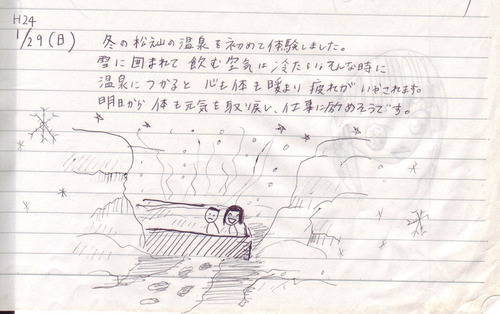 H24
1/29(日) 冬の の温泉を初めて体験しました。
雪に囲まれて 飲む空気は冷たい。そんな時に
温泉につかると 心も体も暖まり 疲れがいやされます。
明日から 体も元気を取り戻し、仕事に励めそうです。